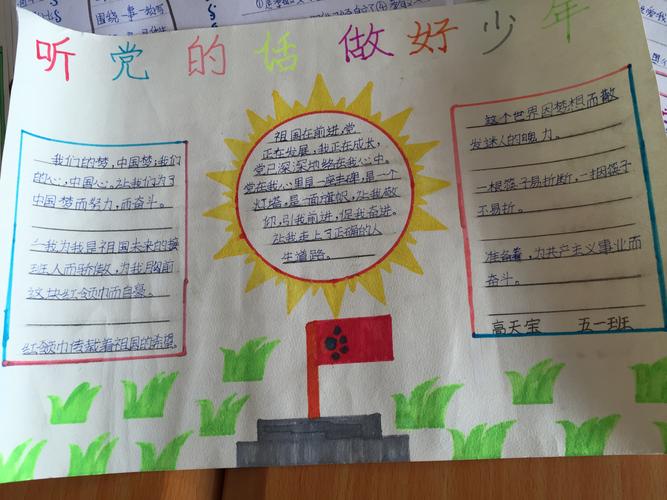 听党的话做好少年
我们的梦,中国梦,我们
的心,中国心,让我们为了
中国梦而努力,而奋斗。
我为我是祖国未来的接
班人而骄傲,为我胸前
这块红领巾而自豪。
红领巾传载着祖国的希望
祖国在前进,党
正在发展,我正在成长,
党已深深地络在我心中。
党在我心里是一座丰碑,是一个
灯塔,是一面旗帜,让我敬
仰,引我前进,促我奋进。
让我走上了正确的人
生道路。
这个世界因梦想而散
发迷人的魄力。
一根筷子易折断,一捆筷子
不易折。
准备着,为共产主义事业而
奋斗。
高天宝 五一班